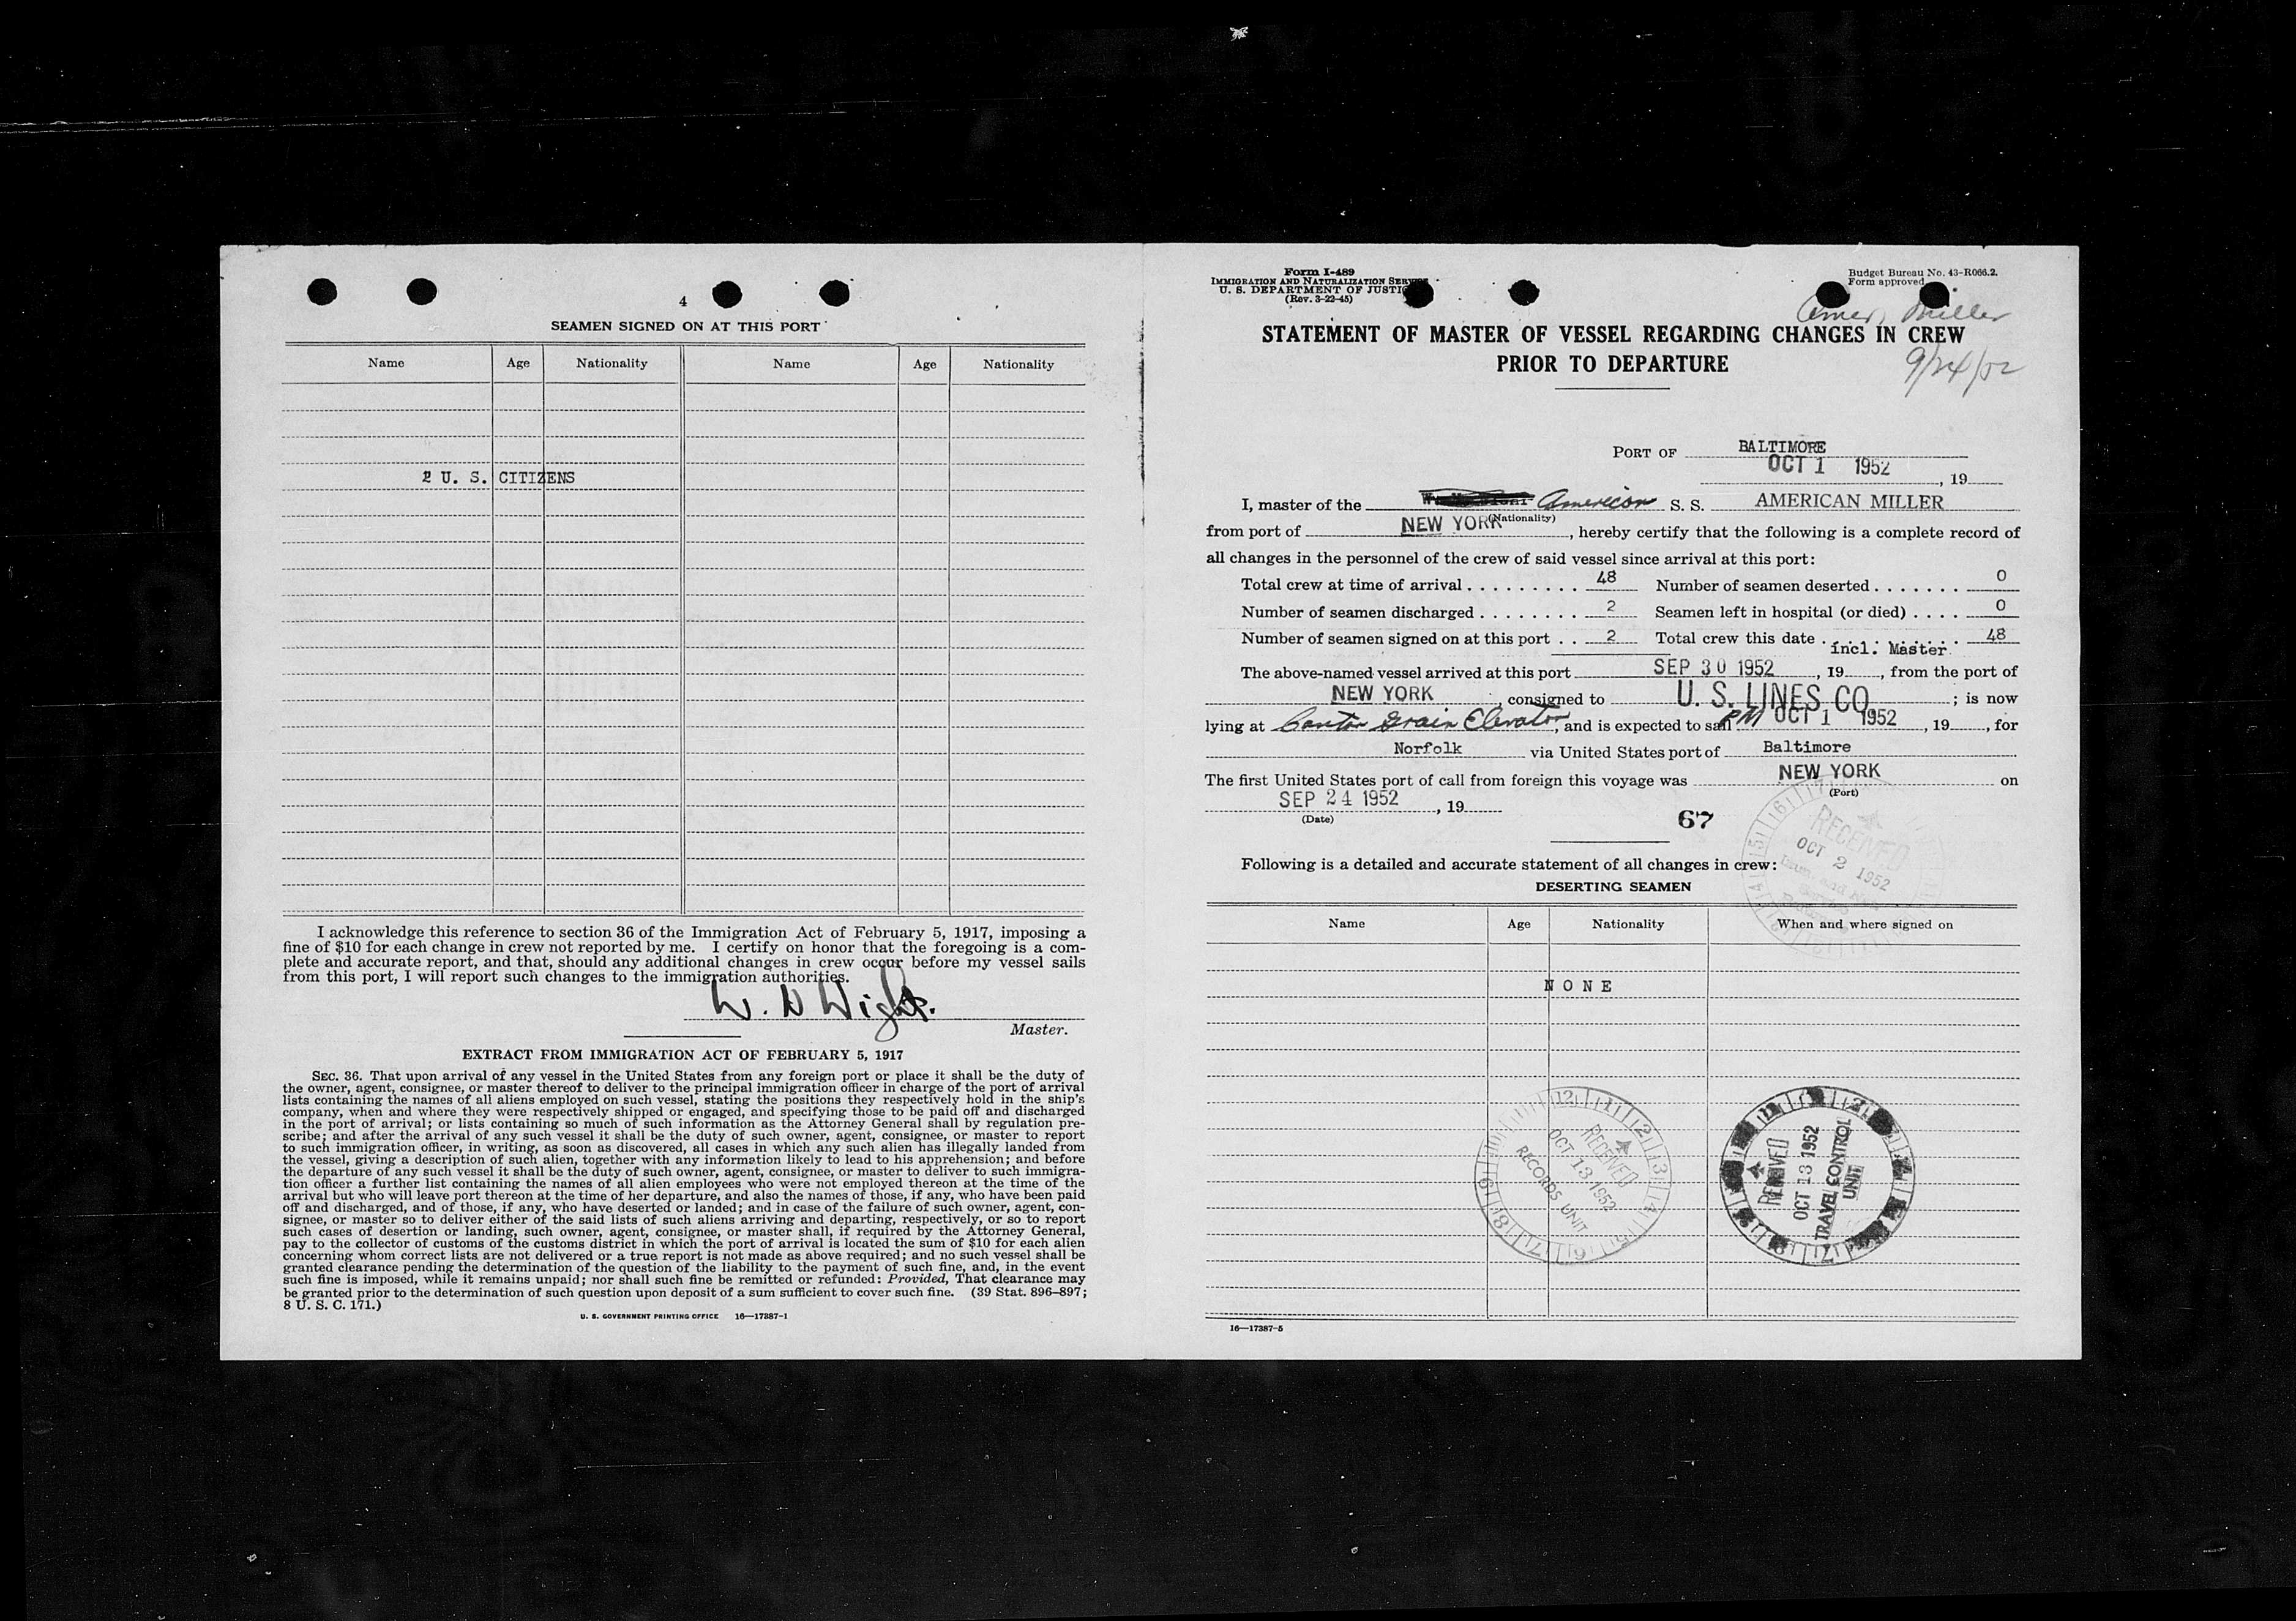 4
SEAMEN SIGNED ON AT THIS PORT
Name Age Nationality Name Age Nationality
2 U. S. CITIZENS
I acknowledge this reference to section 36 of the Immigration Act of February 5, 1917, imposing a
fine of $10 for each change in crew not reported by me. I certify on honor that the foregoing is a com-
plete and accurate report, and that, should any additional changes in crew occur before my vessel sails
from this port, I will report such changes to the immigration authorities.
W. D Wight.
Master.
EXTRACT FROM IMMIGRATION ACT OF FEBRUARY 5, 1917
SEC. 36. That upon arrival of any vessel in the United States from any foreign port or place it shall be the duty of
the owner, agent, consignee, or master thereof to deliver to the principal immigration officer in charge of the port of arrival
lists containing the names of all aliens employed on such vessel, stating the positions they respectively hold in the ship's
company, when and where they were respectively shipped or engaged, and specifying those to be paid off and discharged
in the port of arrival; or lists containing so much of such information as the Attorney General shall by regulation pre-
scribe; and after the arrival of any such vessel it shall be the duty of such owner, agent, consignee, or master to report
to such immigration officer, in writing, as soon as discovered, all cases in which any such alien has illegally landed from
the vessel, giving a description of such alien, together with any information likely to lead to his apprehension; and before
the departure of any such vessel it shall be the duty of such owner, agent, consignee, or master to deliver to such immigra-
tion officer a further list containing the names of all alien employees who were not employed thereon at the time of the
arrival but who will leave port thereon at the time of her departure, and also the names of those, if any, who have been paid
off and discharged, and of those, if any, who have deserted or landed; and in case of the failure of such owner, agent, con-
signee, or master so to deliver either of the said lists of such aliens arriving and departing, respectively, or so to report
such cases of desertion or landing, such owner, agent, consignee, or master shall, if required by the Attorney General,
pay to the collector of customs of the customs district in which the port of arrival is located the sum of $10 for each alien
concerning whom correct lists are not delivered or a true report is not made as above required; and no such vessel shall be
granted clearance pending the determination of the question of the liability to the payment of such fine, and, in the event
such fine is imposed, while it remains unpaid; nor shall such fine be remitted or refunded: Provided, That clearance may
be granted prior to the determination of such question upon deposit of a sum sufficient to cover such fine. (39 Stat. 896–897;
8 U. S. C. 171.)
U. S. GOVERNMENT PRINTING OFFICE 16—17387-1
Form I-489
IMMIGRATION AND NATURALIZATION SERV
U. S. DEPARTMENT OF JUSTIC
(Rev. 3-22-45)
Budget Bureau No. 43-R066.2.
Form approved
Amer. Miller
STATEMENT OF MASTER OF VESSEL REGARDING CHANGES IN CREW
PRIOR TO DEPARTURE
9/24/52
PORT OF BALTIMORE
OCT 1 1952, 19
I, master of the American S. S. AMERICAN MILLER
(Nationality)
from port of NEW YORK, hereby certify that the following is a complete record of
all changes in the personnel of the crew of said vessel since arrival at this port:
Total crew at time of arrival . . . . . . . . . 48 Number of seamen deserted . . . . . . . 0
Number of seamen discharged . . . . . . . . 2 Seamen left in hospital (or died) . . . . 0
Number of seamen signed on at this port . . 2 Total crew this date . . . . . . . . . . . 48
incl. Master
The above-named vessel arrived at this port SEP 30 1952, 19, from the port of
NEW YORK, consigned to U. S. LINES CO.; is now
lying at Canton Grain Elevator, and is expected to sail PM OCT 1 1952, 19, for
Norfolk via United States port of Baltimore
The first United States port of call from foreign this voyage was NEW YORK on
(Port)
SEP 24 1952, 19
(Date)
67
RECEIVED
OCT 2 1952
Following is a detailed and accurate statement of all changes in crew:
DESERTING SEAMEN
Name Age Nationality When and where signed on
N O N E
RECEIVED
OCT 13 1952
RECORDS UNIT
RECEIVED
OCT 13 1952
TRAVEL CONTROL
UNIT
16—17387-5